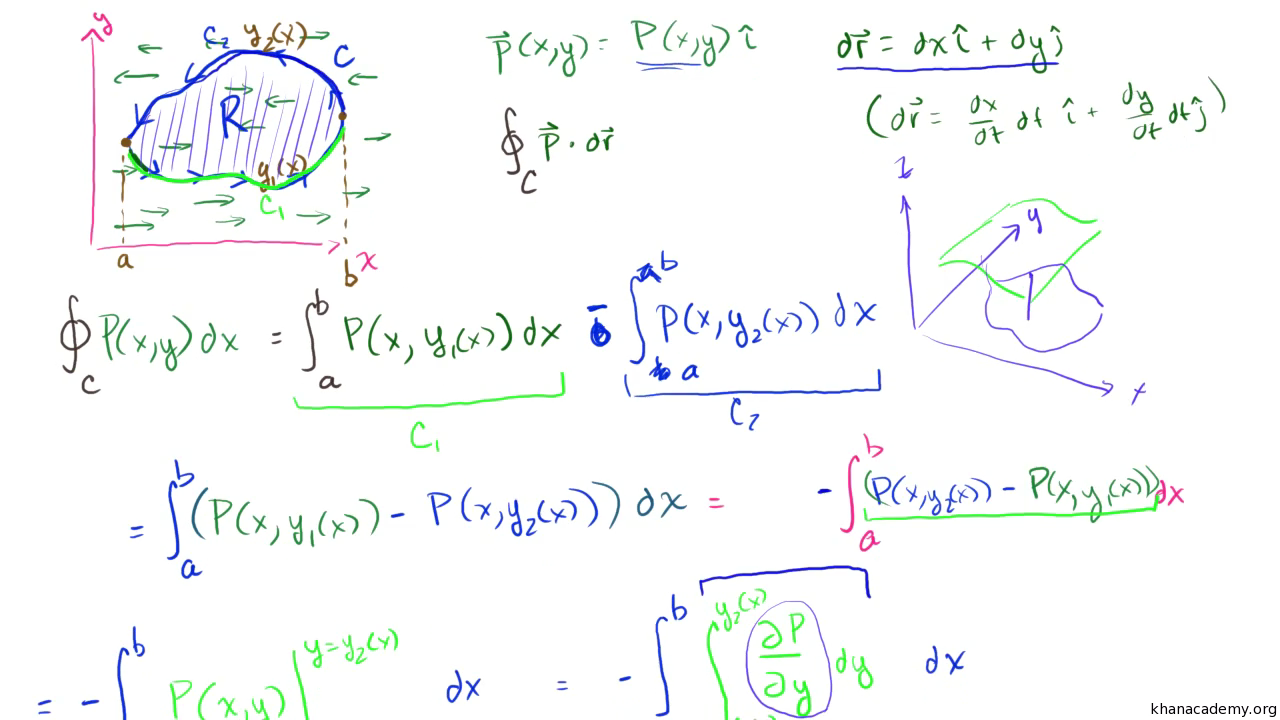 y
C₂ y₂(x) C
R
y₁(x)
C₁
a b x
P⃗(x,y) = P(x,y) î
∮_C P⃗ · dr⃗
dr⃗ = dx î + dy ĵ
(dr⃗ = dx/dt dt î + dy/dt dt ĵ)
z
y
x
∮_C P(x,y) dx = ∫_a^b P(x, y₁(x)) dx - ∫_a^b P(x, y₂(x)) dx
C₁ C₂
= ∫_a^b (P(x, y₁(x)) - P(x, y₂(x))) dx = - ∫_a^b (P(x, y₂(x)) - P(x, y₁(x))) dx
= - ∫^b P(x,y) |^{y=y₂(x)} dx = - ∫^b ∫^{y₂(x)} ∂P/∂y dy dx
khanacademy.org